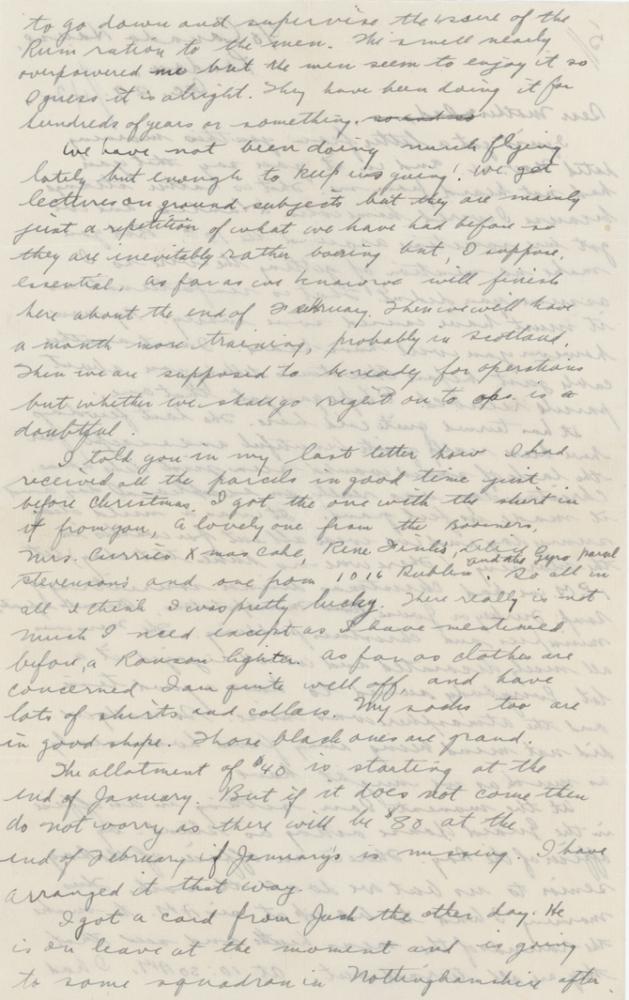 to go down and supervise the issue of the
Rum ration to the men. The smell nearly
overpowered me but the men seem to enjoy it so
I guess it is alright. They have been doing it for
hundreds of years or something.
We have not been doing much flying
lately but enough to keep us going! We get
lectures on ground subjects but they are mainly
just a repetition of what we have had before so
they are inevitably rather boering but, I suppose,
essential. As far as we know we will finish
here about the end of February. Then we will have
a month more training, probably in Scotland.
Then we are supposed to be ready for operations
but whether we shall go right on to ops is a
doubtful.
I told you in my last letter how I had
received all the parcels in good time just
before Christmas. I got the one with the shirt in
it from you, a lovely one from the
Mrs. Currie's Xmas cake, Rene and the Gyro parcel
Stevenson's and one from 1016 . So all in
all I think I was pretty lucky. There really is not
much I need except as I have mentioned
before, a Ronson lighter. As far as clothes are
concerned I am quite well off, and have
lots of shirts and collars. My socks too are
in good shape. Those black ones are grand.
The allotment of $40 is starting at the
end of January. But if it does not come then
do not worry as there will be $80 at the
end of February if January's is missing. I have
arranged it that way.
I got a card from Jack the other day. He
is on leave at the moment and is going
to some squadron in Nottinghamshire after